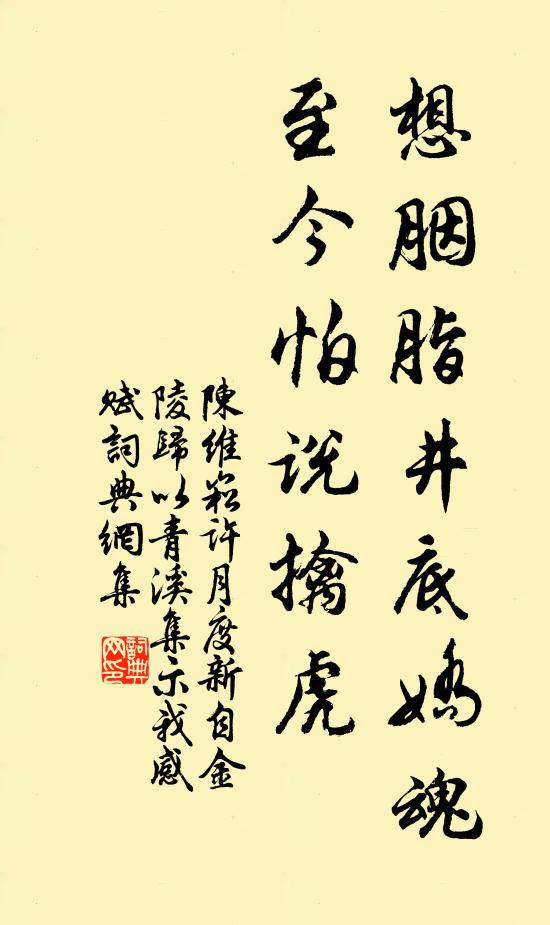 想胭脂井底嬌魂
至今怕說擒虎
陳維崧許月度新自金
陵歸以青溪集示我感
賦詞典網集
詞典網印